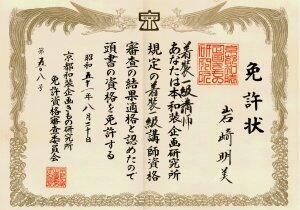 免許状
岩崎明美
着装一級講師
あなたは本和装企画研究所
規定の着装一級講師資格
審査の結果適格と認めたので
頭書の資格を免許する
昭和五十一年八月二十日
京都和装企画きもの研究所
免許資格審査委員会
京